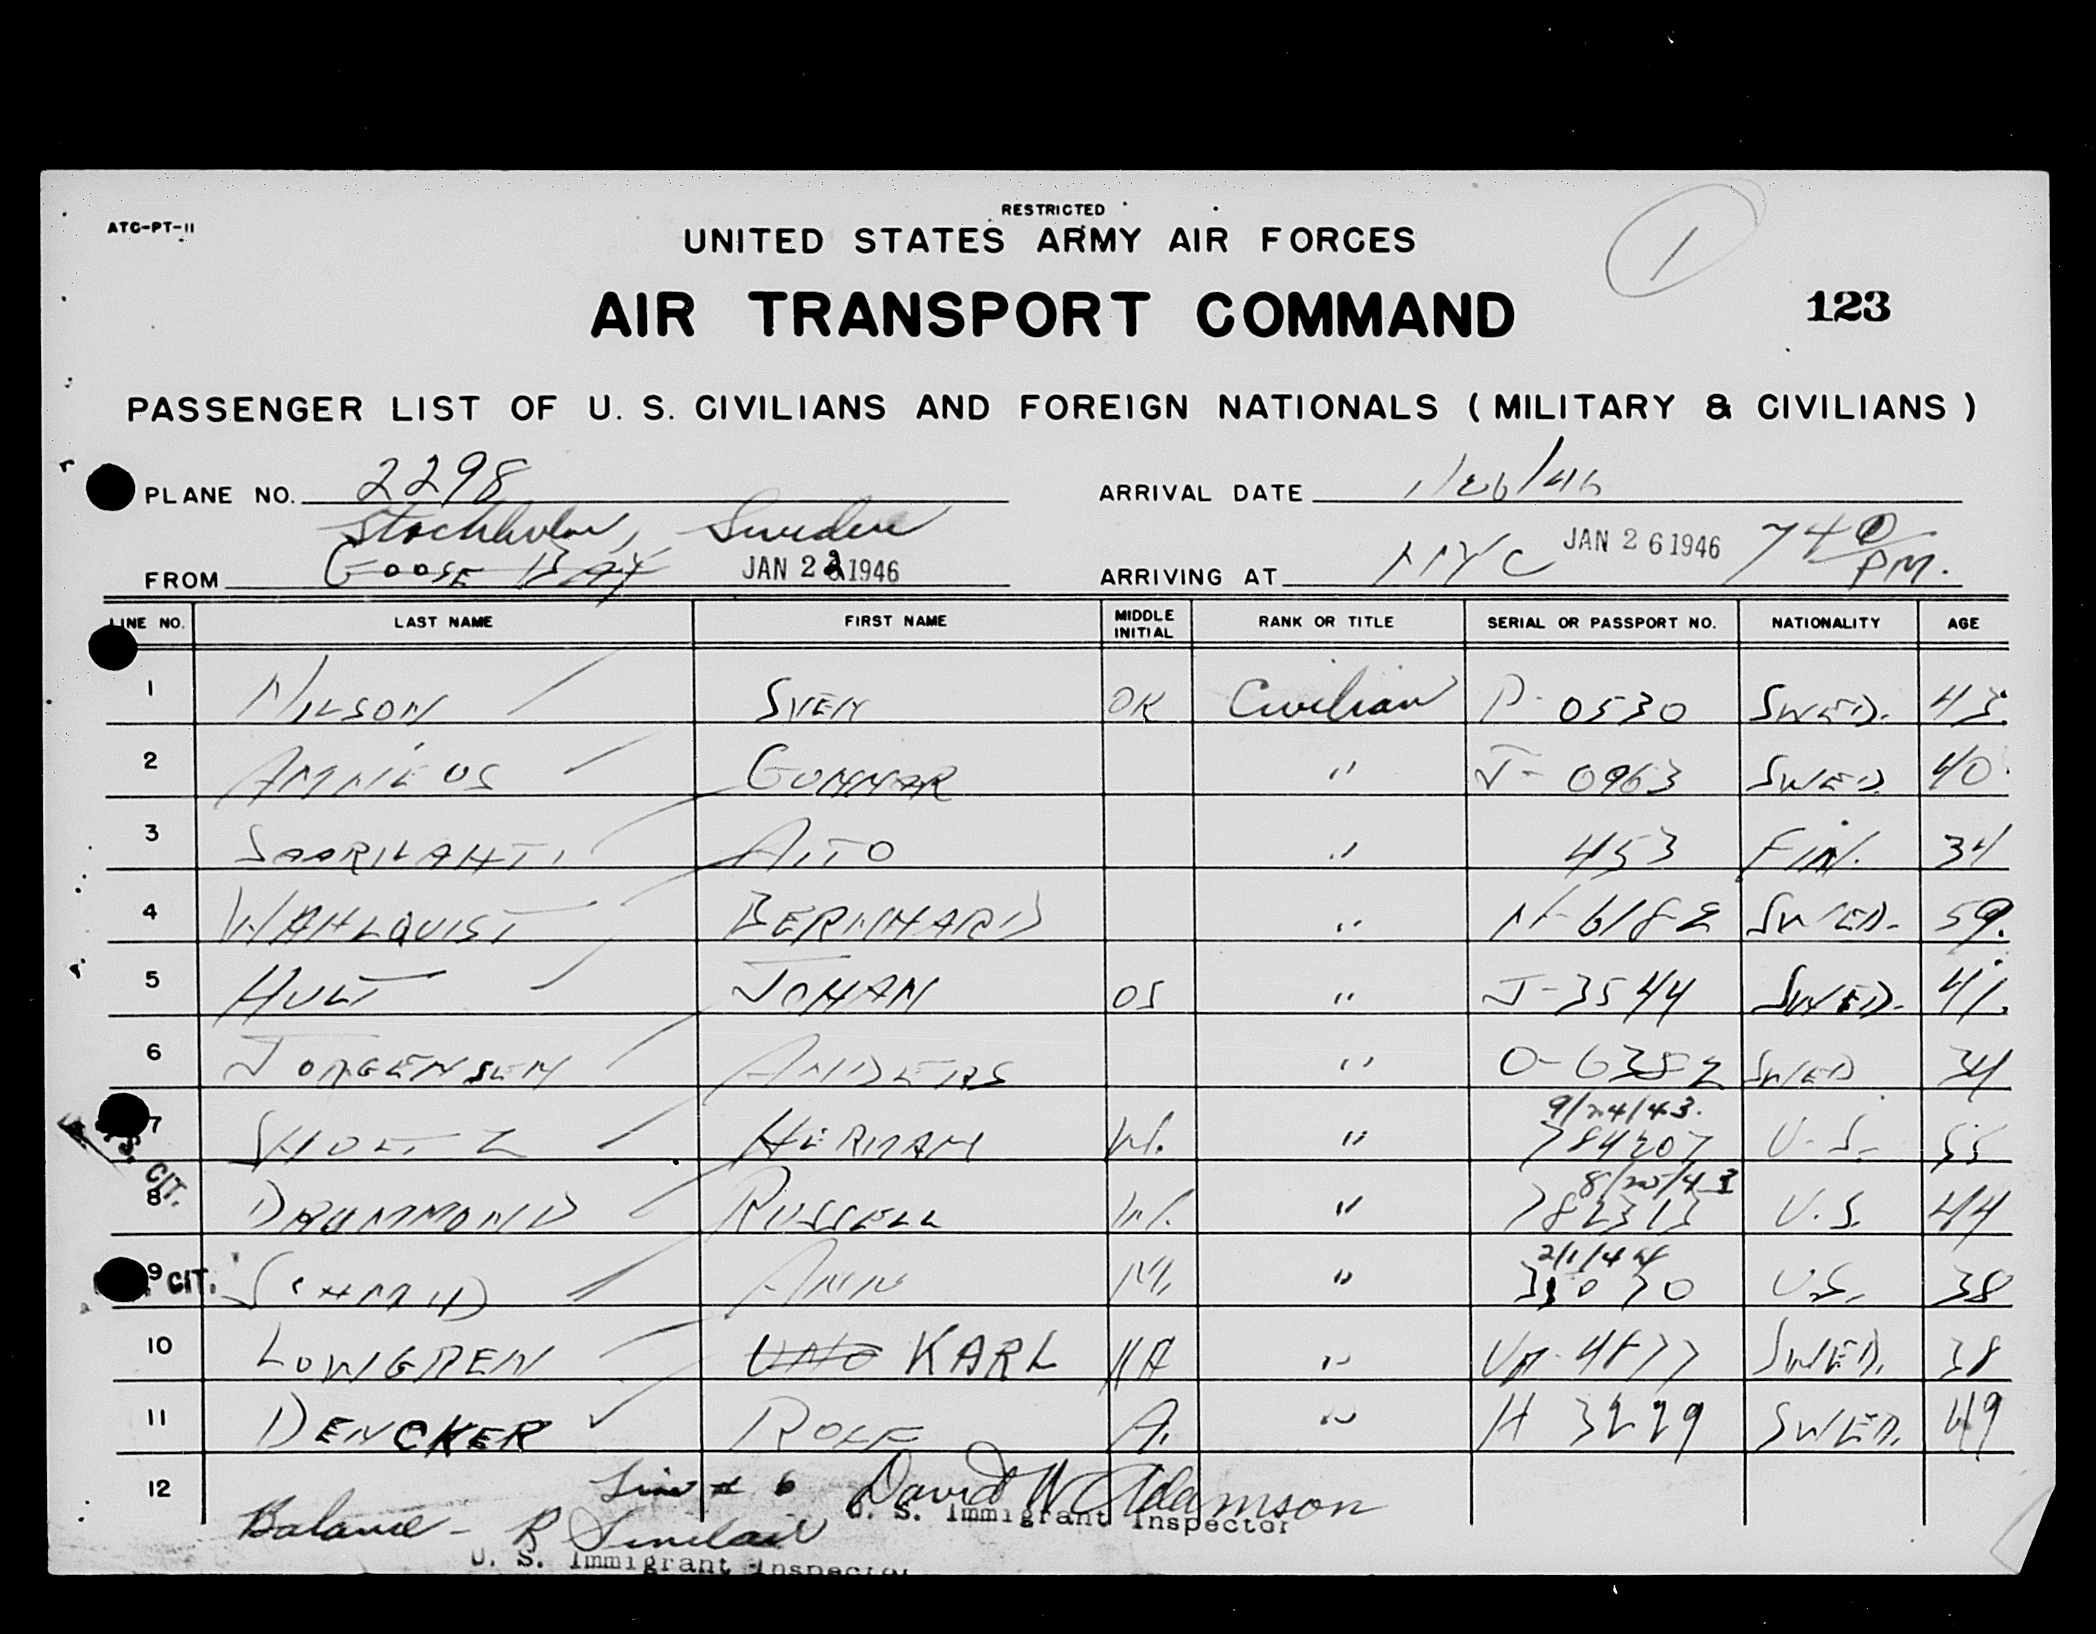 RESTRICTED
ATC-PT-11
UNITED STATES ARMY AIR FORCES
1
AIR TRANSPORT COMMAND
123
PASSENGER LIST OF U. S. CIVILIANS AND FOREIGN NATIONALS ( MILITARY & CIVILIANS )
PLANE NO. 2298 ARRIVAL DATE 1/26/46
Stockholm, Sweden
FROM Goose Bay JAN 22 1946 ARRIVING AT NYC JAN 26 1946 740 PM.
LINE NO. LAST NAME FIRST NAME MIDDLE INITIAL RANK OR TITLE SERIAL OR PASSPORT NO. NATIONALITY AGE
1 NILSON SVEN OK Civilian P-0530 SWED. 43
2 ANNIEOS GUNNAR " J-0963 SWED. 40
3 SAARILAHTI AITO " 453 FIN. 34
4 WAHLQUIST BERNHARD " N-6182 SWED. 59.
5 HULT JOHAN OS " J-3544 SWED. 41.
6 JORGENSEN ANDERS " O-6382 SWED 34
9/24/43.
7 SHOLTZ HERMAN W. " 784207 U.S. 55
8/25/43
8 DRUMMOND RUSSELL W. " 782313 U.S. 44
2/1/44
9 CIT. SCHMID ANN M. " U.S. 38
10 LOWGREN UNO KARL HA " 4877 SWED. 38
11 DENCKER ROLF A. " H 3229 SWED. 49
12 Line # 6 David W Adamson
U. S. Immigrant Inspector
Balance - R Sinclair
U. S. Immigrant Inspector
U.S. CIT.